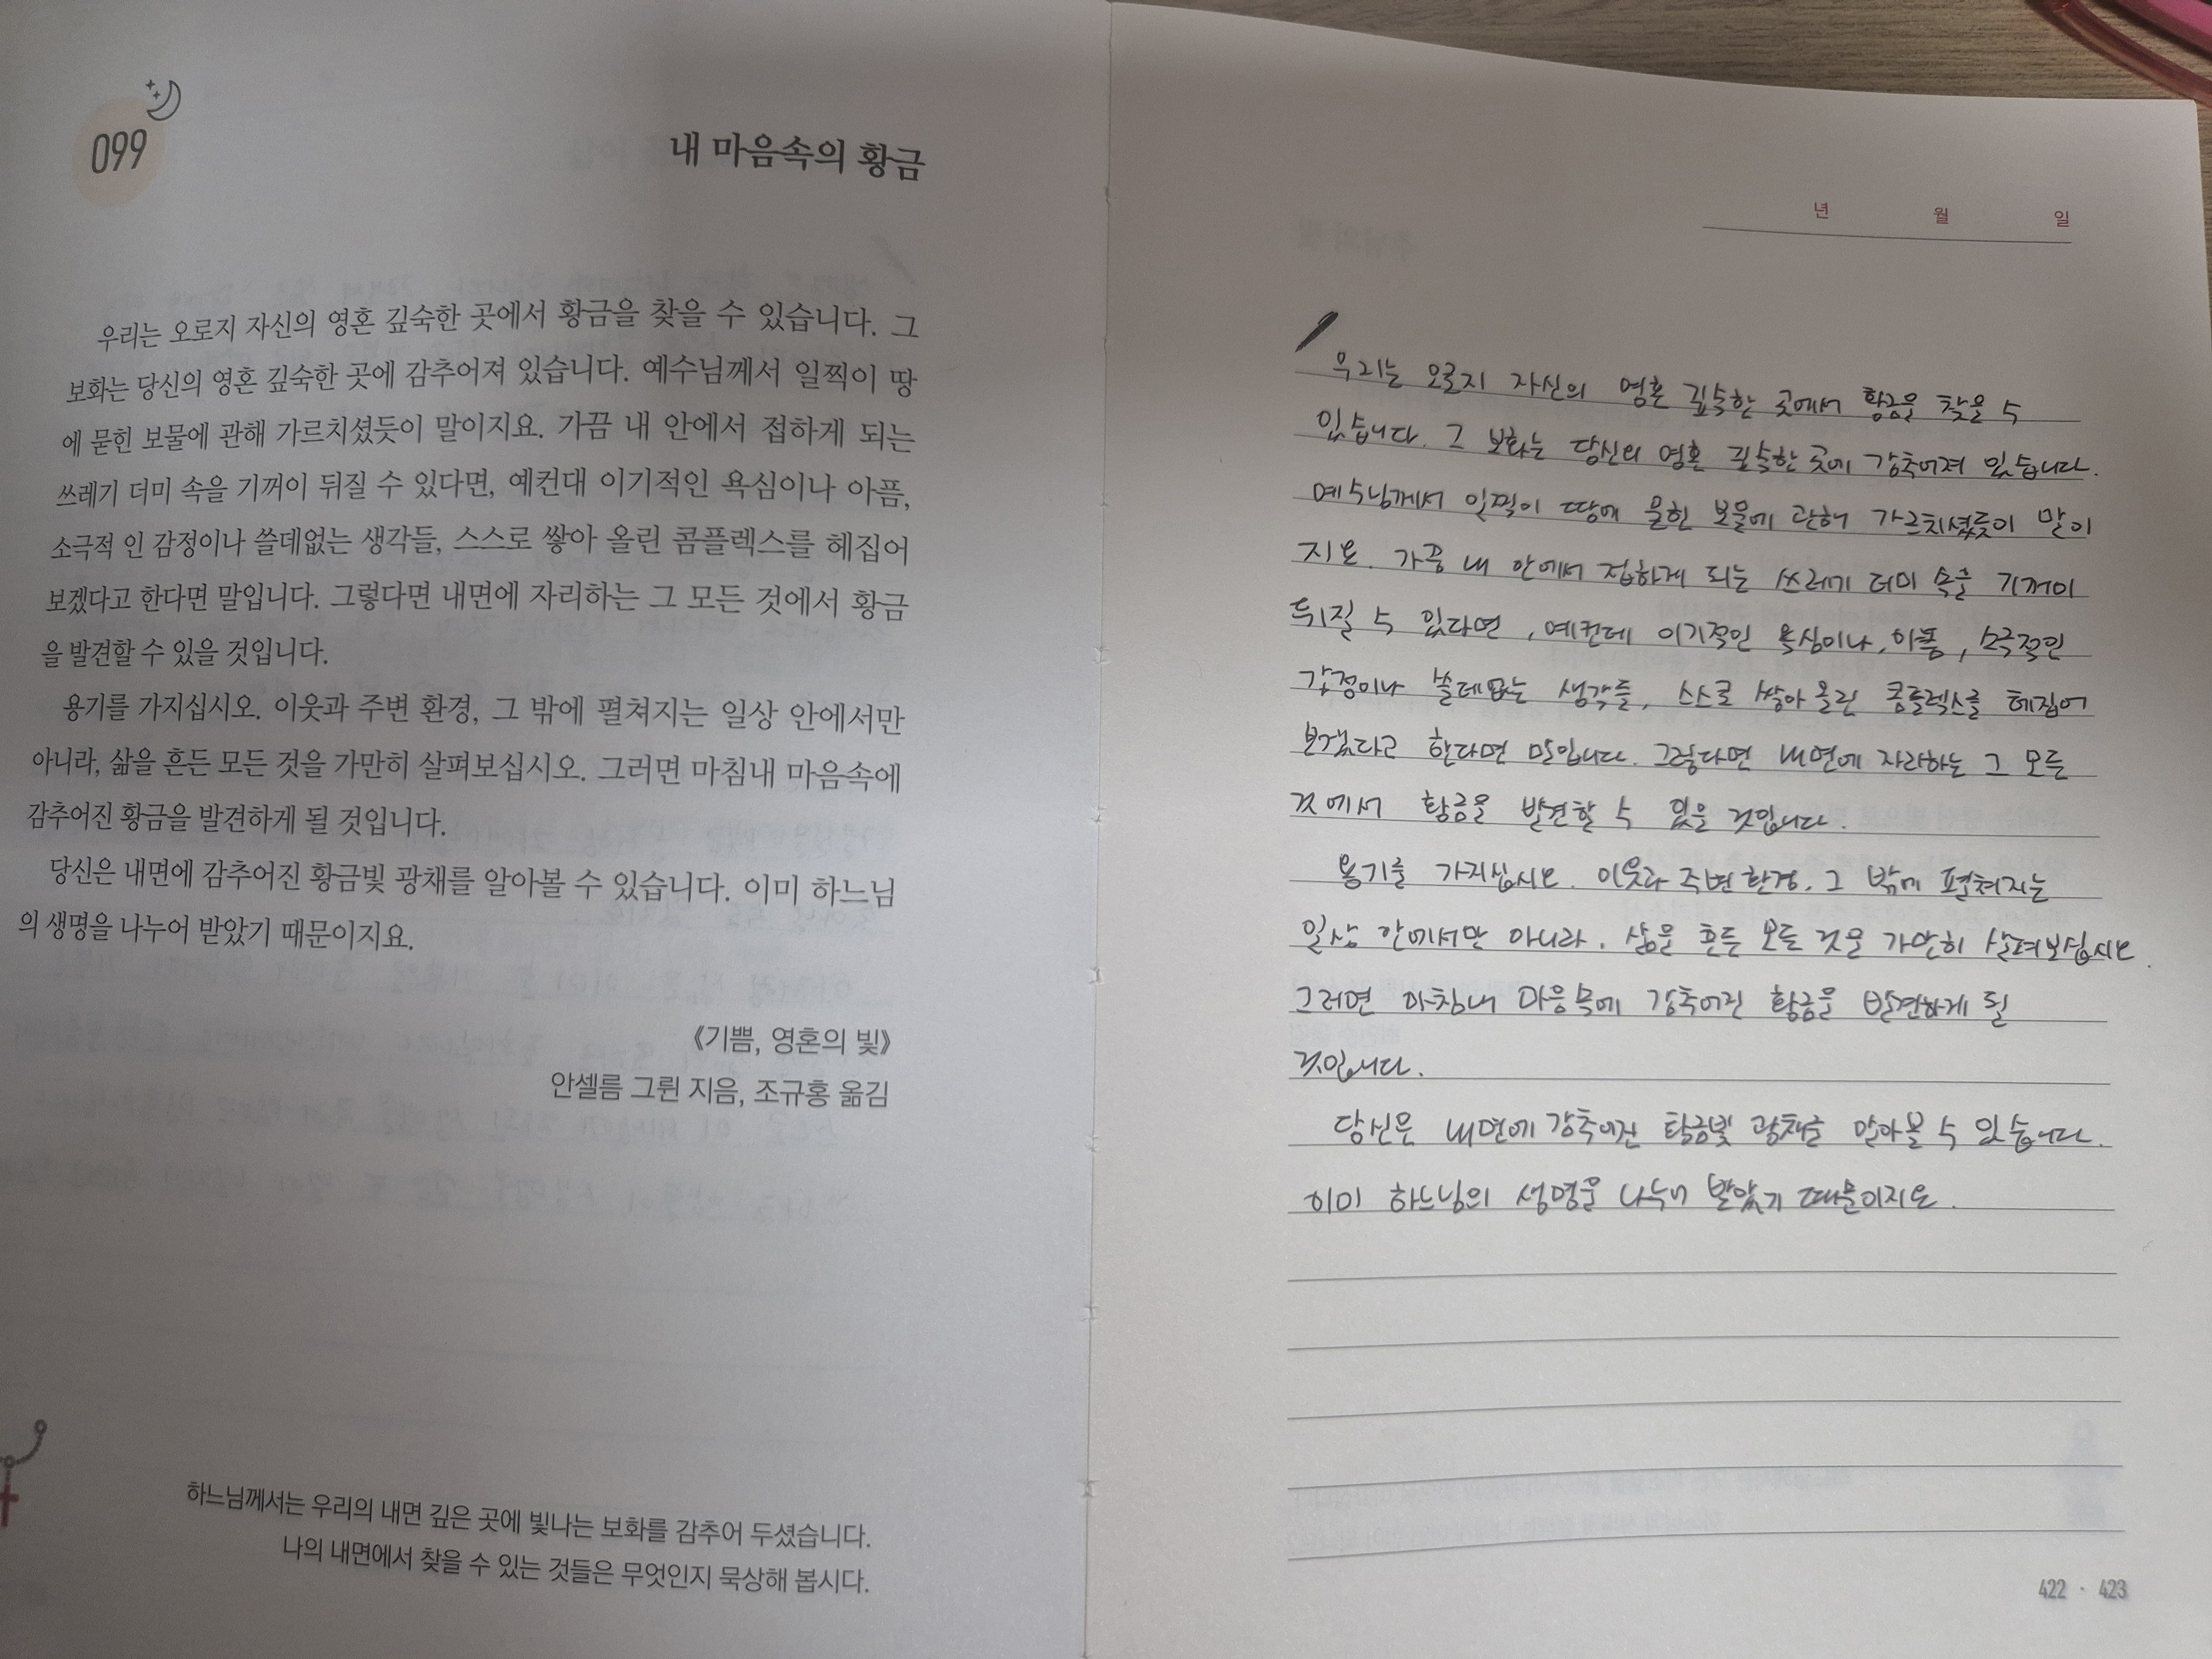 099
내 마음속의 황금
우리는 오로지 자신의 영혼 깊숙한 곳에서 황금을 찾을 수 있습니다. 그
보화는 당신의 영혼 깊숙한 곳에 감추어져 있습니다. 예수님께서 일찍이 땅
에 묻힌 보물에 관해 가르치셨듯이 말이지요. 가끔 내 안에서 접하게 되는
쓰레기 더미 속을 기꺼이 뒤질 수 있다면, 예컨대 이기적인 욕심이나 아픔,
소극적 인 감정이나 쓸데없는 생각들, 스스로 쌓아 올린 콤플렉스를 헤집어
보겠다고 한다면 말입니다. 그렇다면 내면에 자리하는 그 모든 것에서 황금
을 발견할 수 있을 것입니다.
용기를 가지십시오. 이웃과 주변 환경, 그 밖에 펼쳐지는 일상 안에서만
아니라, 삶을 흔든 모든 것을 가만히 살펴보십시오. 그러면 마침내 마음속에
감추어진 황금을 발견하게 될 것입니다.
당신은 내면에 감추어진 황금빛 광채를 알아볼 수 있습니다. 이미 하느님
의 생명을 나누어 받았기 때문이지요.
《기쁨, 영혼의 빛》
안셀름 그륀 지음, 조규홍 옮김
하느님께서는 우리의 내면 깊은 곳에 빛나는 보화를 감추어 두셨습니다.
나의 내면에서 찾을 수 있는 것들은 무엇인지 묵상해 봅시다.
년 월 일
우리는 오로지 자신의 영혼 깊숙한 곳에서 황금을 찾을 수
있습니다. 그 보화는 당신의 영혼 깊숙한 곳에 감추어져 있습니다.
예수님께서 일찍이 땅에 묻힌 보물에 관해 가르치셨듯이 말이
지요. 가끔 내 안에서 접하게 되는 쓰레기 더미 속을 기꺼이
뒤질 수 있다면, 예컨데 이기적인 욕심이나, 아픔, 소극적인
감정이나 쓸데없는 생각들, 스스로 쌓아 올린 콤플렉스를 헤집어
보겠다고 한다면 말입니다. 그렇다면 내면에 자리하는 그 모든
것에서 황금을 발견할 수 있을 것입니다.
용기를 가지십시오. 이웃과 주변 환경, 그 밖에 펼쳐지는
일상 안에서만 아니라, 삶을 흔든 모든 것을 가만히 살펴보십시오.
그러면 마침내 마음속에 감추어진 황금을 발견하게 될
것입니다.
당신은 내면에 감추어진 황금빛 광채를 알아볼 수 있습니다.
이미 하느님의 생명을 나누어 받았기 때문이지요.
422 · 423